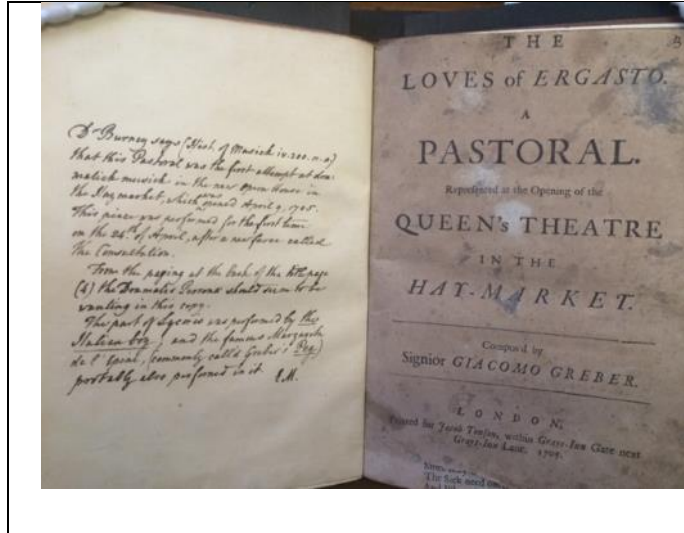 Dr Burney says (Hist. of Musick iv. 200. n. a)
that this Pastoral was the first attempt at dra-
matick musick in the new Opera House in
the Haymarket, which was opened April 9, 1705.
This piece was performed for the first time
on the 24th of April, after a new farce called
The Consultation.
From the paging at the back of the title page
(4) the Dramatis Personæ should seem to be
wanting in this copy.
The part of Licoris was performed by the
Italian boy, and the famous Margarita
de l'Epine, (commonly call'd Greber's Peg)
probably also performed in it. E.M.
THE
LOVES of ERGASTO.
A
PASTORAL.
Represented at the Opening of the
QUEEN's THEATRE
IN THE
HAY-MARKET.
Compos'd by
Signior GIACOMO GREBER.
LONDON,
Printed for Jacob Tonson, within Grays-Inn Gate next
Grays-Inn Lane. 1705.
The Sick need